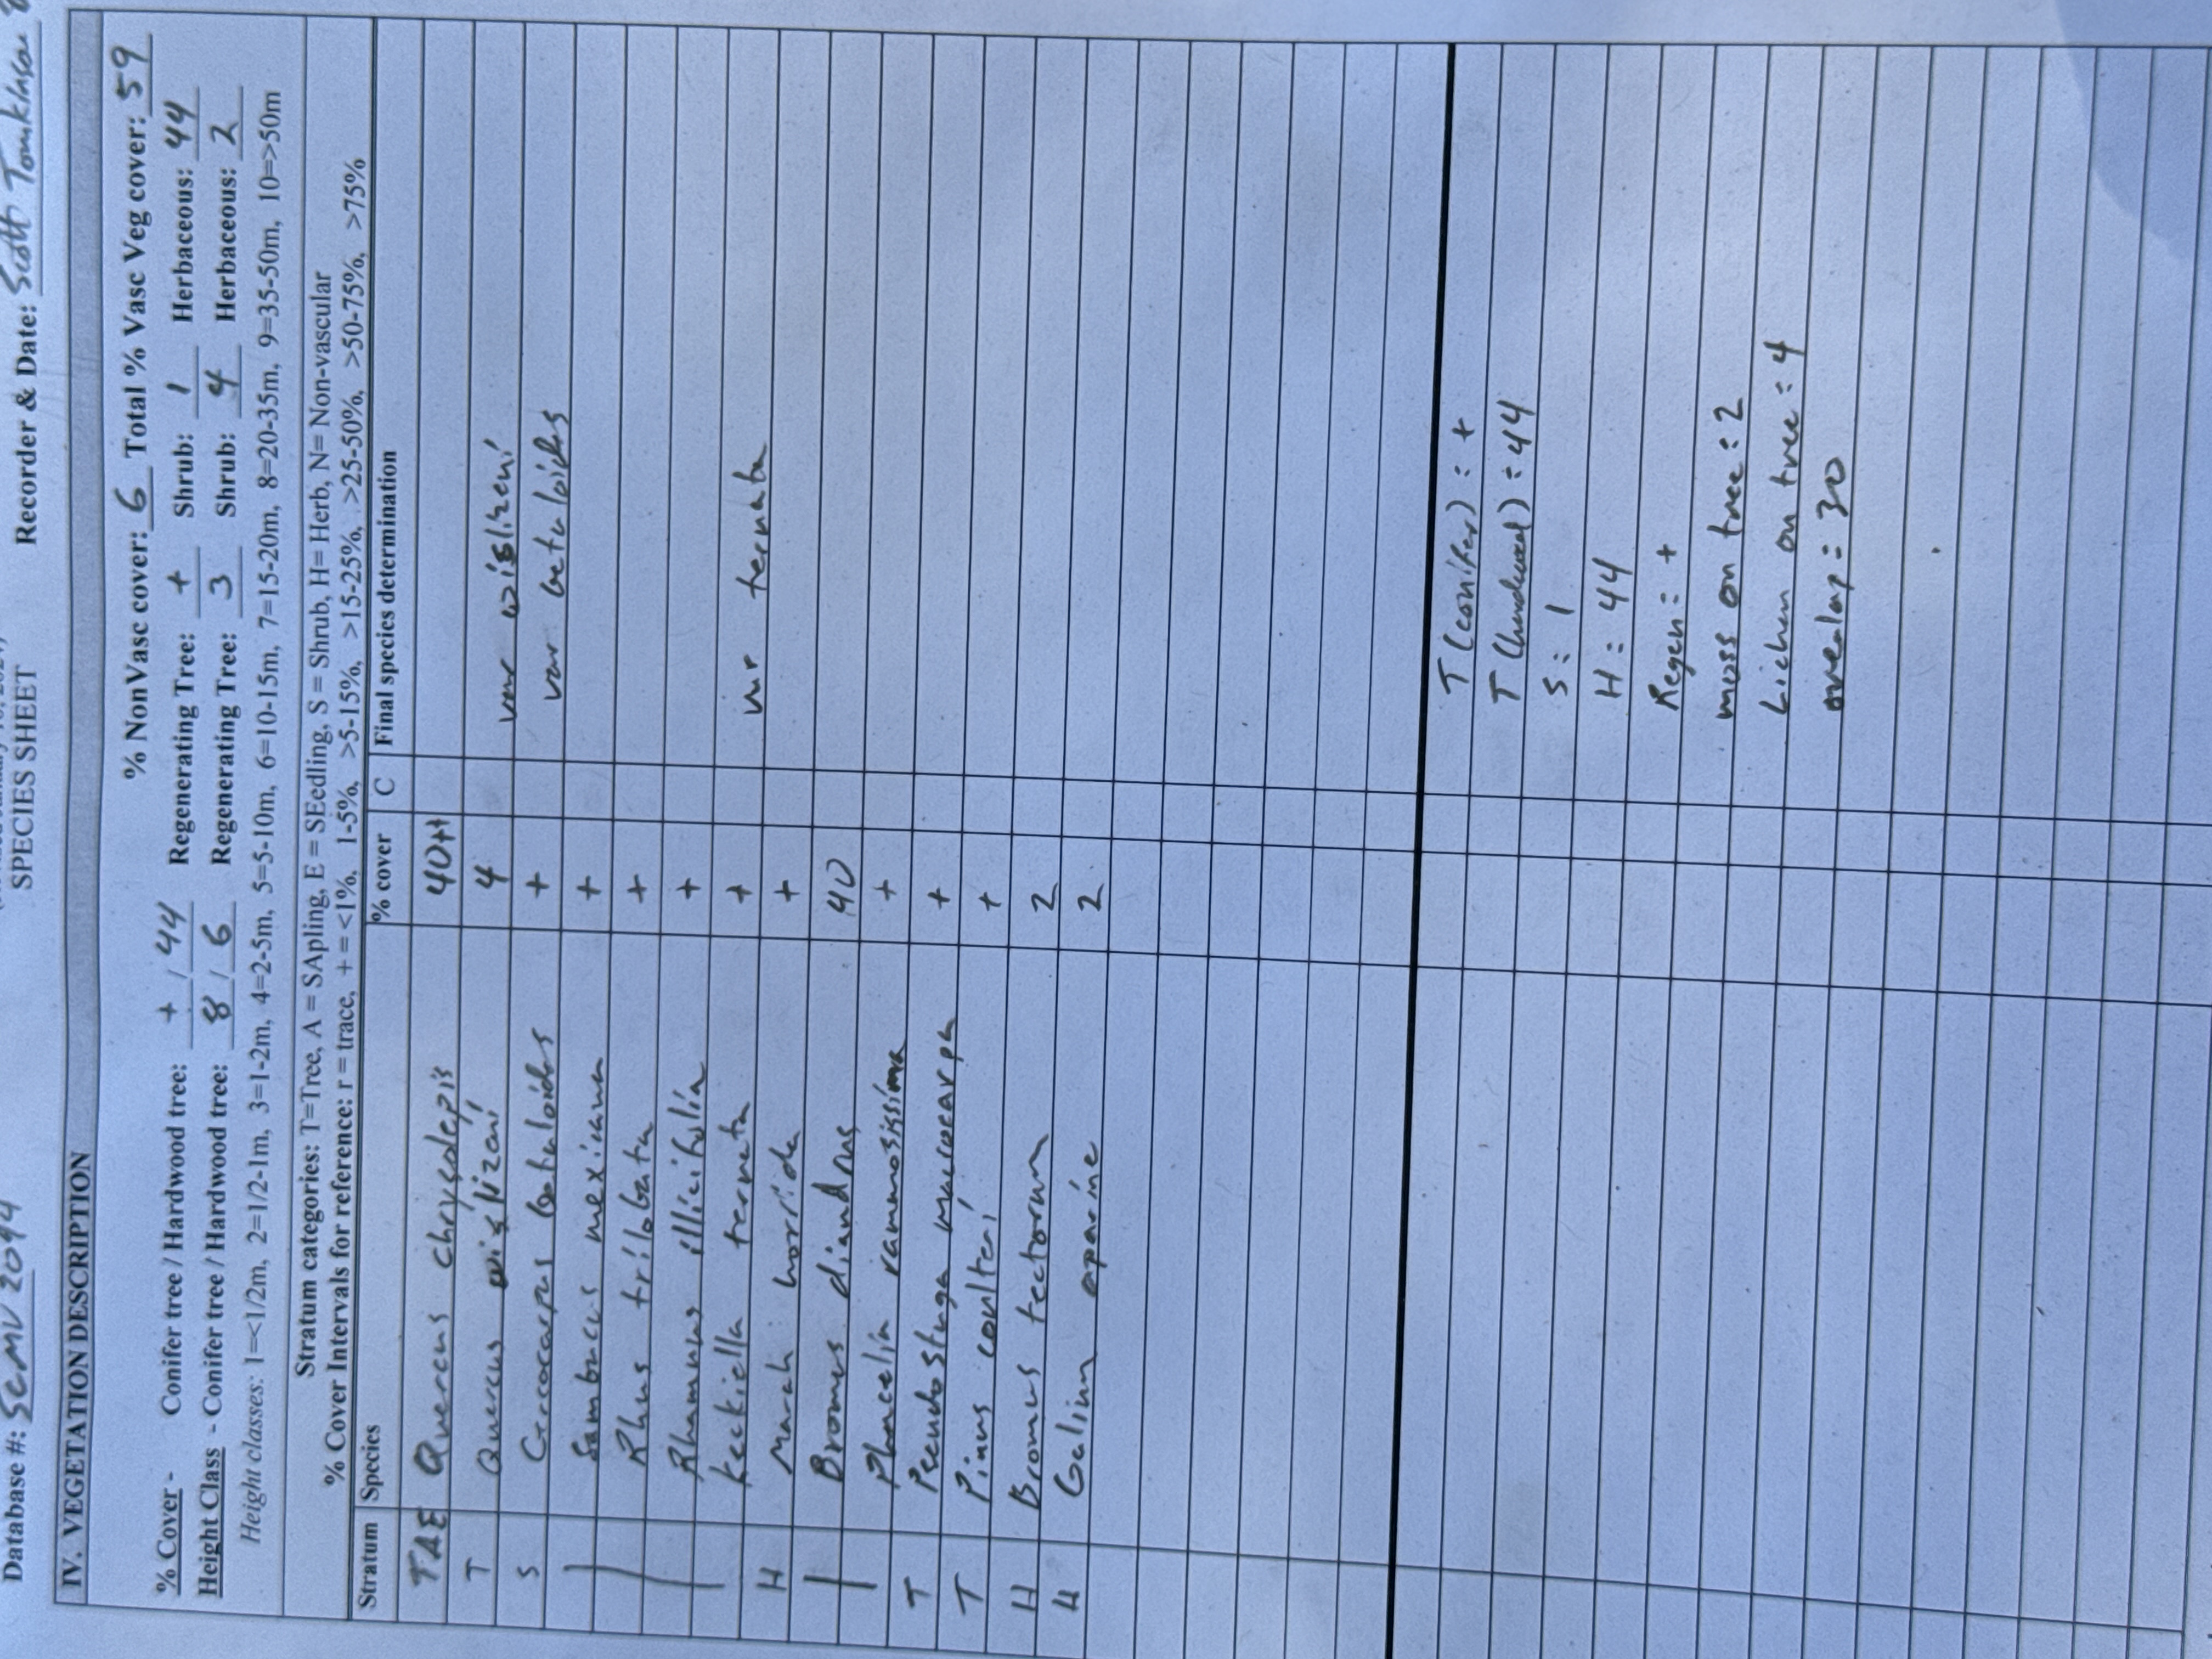 SPECIES SHEET
Database #: SCMV 2094 Recorder & Date: Scott Tomkinson
IV. VEGETATION DESCRIPTION
% NonVasc cover: 6 Total % Vasc Veg cover: 59
% Cover - Conifer tree / Hardwood tree: + / 44 Regenerating Tree: + Shrub: 1 Herbaceous: 44
Height Class - Conifer tree / Hardwood tree: 8 / 6 Regenerating Tree: 3 Shrub: 4 Herbaceous: 2
Height classes: 1=<1/2m, 2=1/2-1m, 3=1-2m, 4=2-5m, 5=5-10m, 6=10-15m, 7=15-20m, 8=20-35m, 9=35-50m, 10=>50m
Stratum categories: T=Tree, A = SApling, E = SEedling, S = Shrub, H= Herb, N= Non-vascular
% Cover Intervals for reference: r = trace, + = <1%, 1-5%, >5-15%, >15-25%, >25-50%, >50-75%, >75%
Stratum Species % cover C Final species determination
TAE Quercus chrysolepis 40++
T Quercus wislizeni 4 var wislizeni
S Cercocarpus betuloides + var betuloides
Sambucus mexicana +
Rhus trilobata +
Rhamnus illicifolia +
Keckiella ternata + var ternata
H Marah horrida +
Bromus diandrus 40
Phacelia ramosissima +
T Pseudostuga macrocarpa +
T Pinus coulteri +
H Bromus tectorum 2
H Galium aparine 2
T (conifer) : +
T (hardwood) : 44
S : 1
H : 44
Regen : +
moss on tree : 2
Lichen on tree : 4
overlap : 30